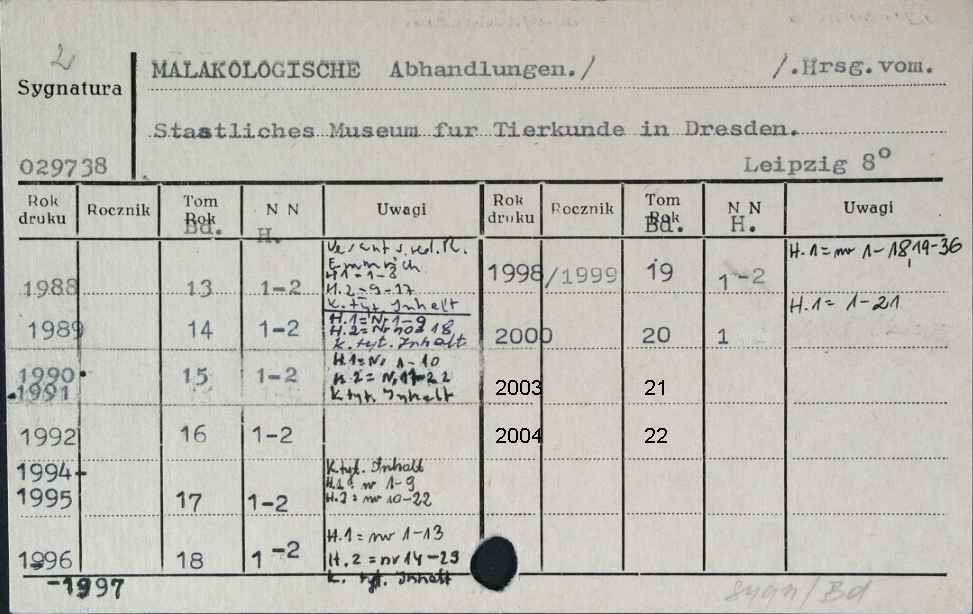 2
Sygnatura
029738
MALAKOLOGISCHE Abhandlungen./ /.Hrsg.vom.
Staatliches Museum fur Tierkunde in Dresden.
Leipzig 8°
Rok druku Rocznik Tom Rok Bd. N N H. Uwagi
1988 13 1-2
Emmrich
H.1=1-8
H.2=9-17
K. tyt. Inhalt
1989 14 1-2
H.1=Nr 1-9
K. tyt. Inhalt
1990 1991 15 1-2
H.1=Nr 1-10
H.2=Nr 11-22
K tyt. Inhalt
1992 16 1-2
1994-1995 17 1-2
K. tyt. Inhalt
H.1= nr 1-9
H.2= nr 10-22
1996-1997 18 1-2
H.1= nr 1-13
H.2= nr 14-23
K. tyt. Inhalt
Rok druku Rocznik Tom Rok Bd. N N H. Uwagi
1998/1999 19 1-2
H.1= nr 1-18, 19-36
2000 20 1
H.1= 1-21
2003 21
2004 22